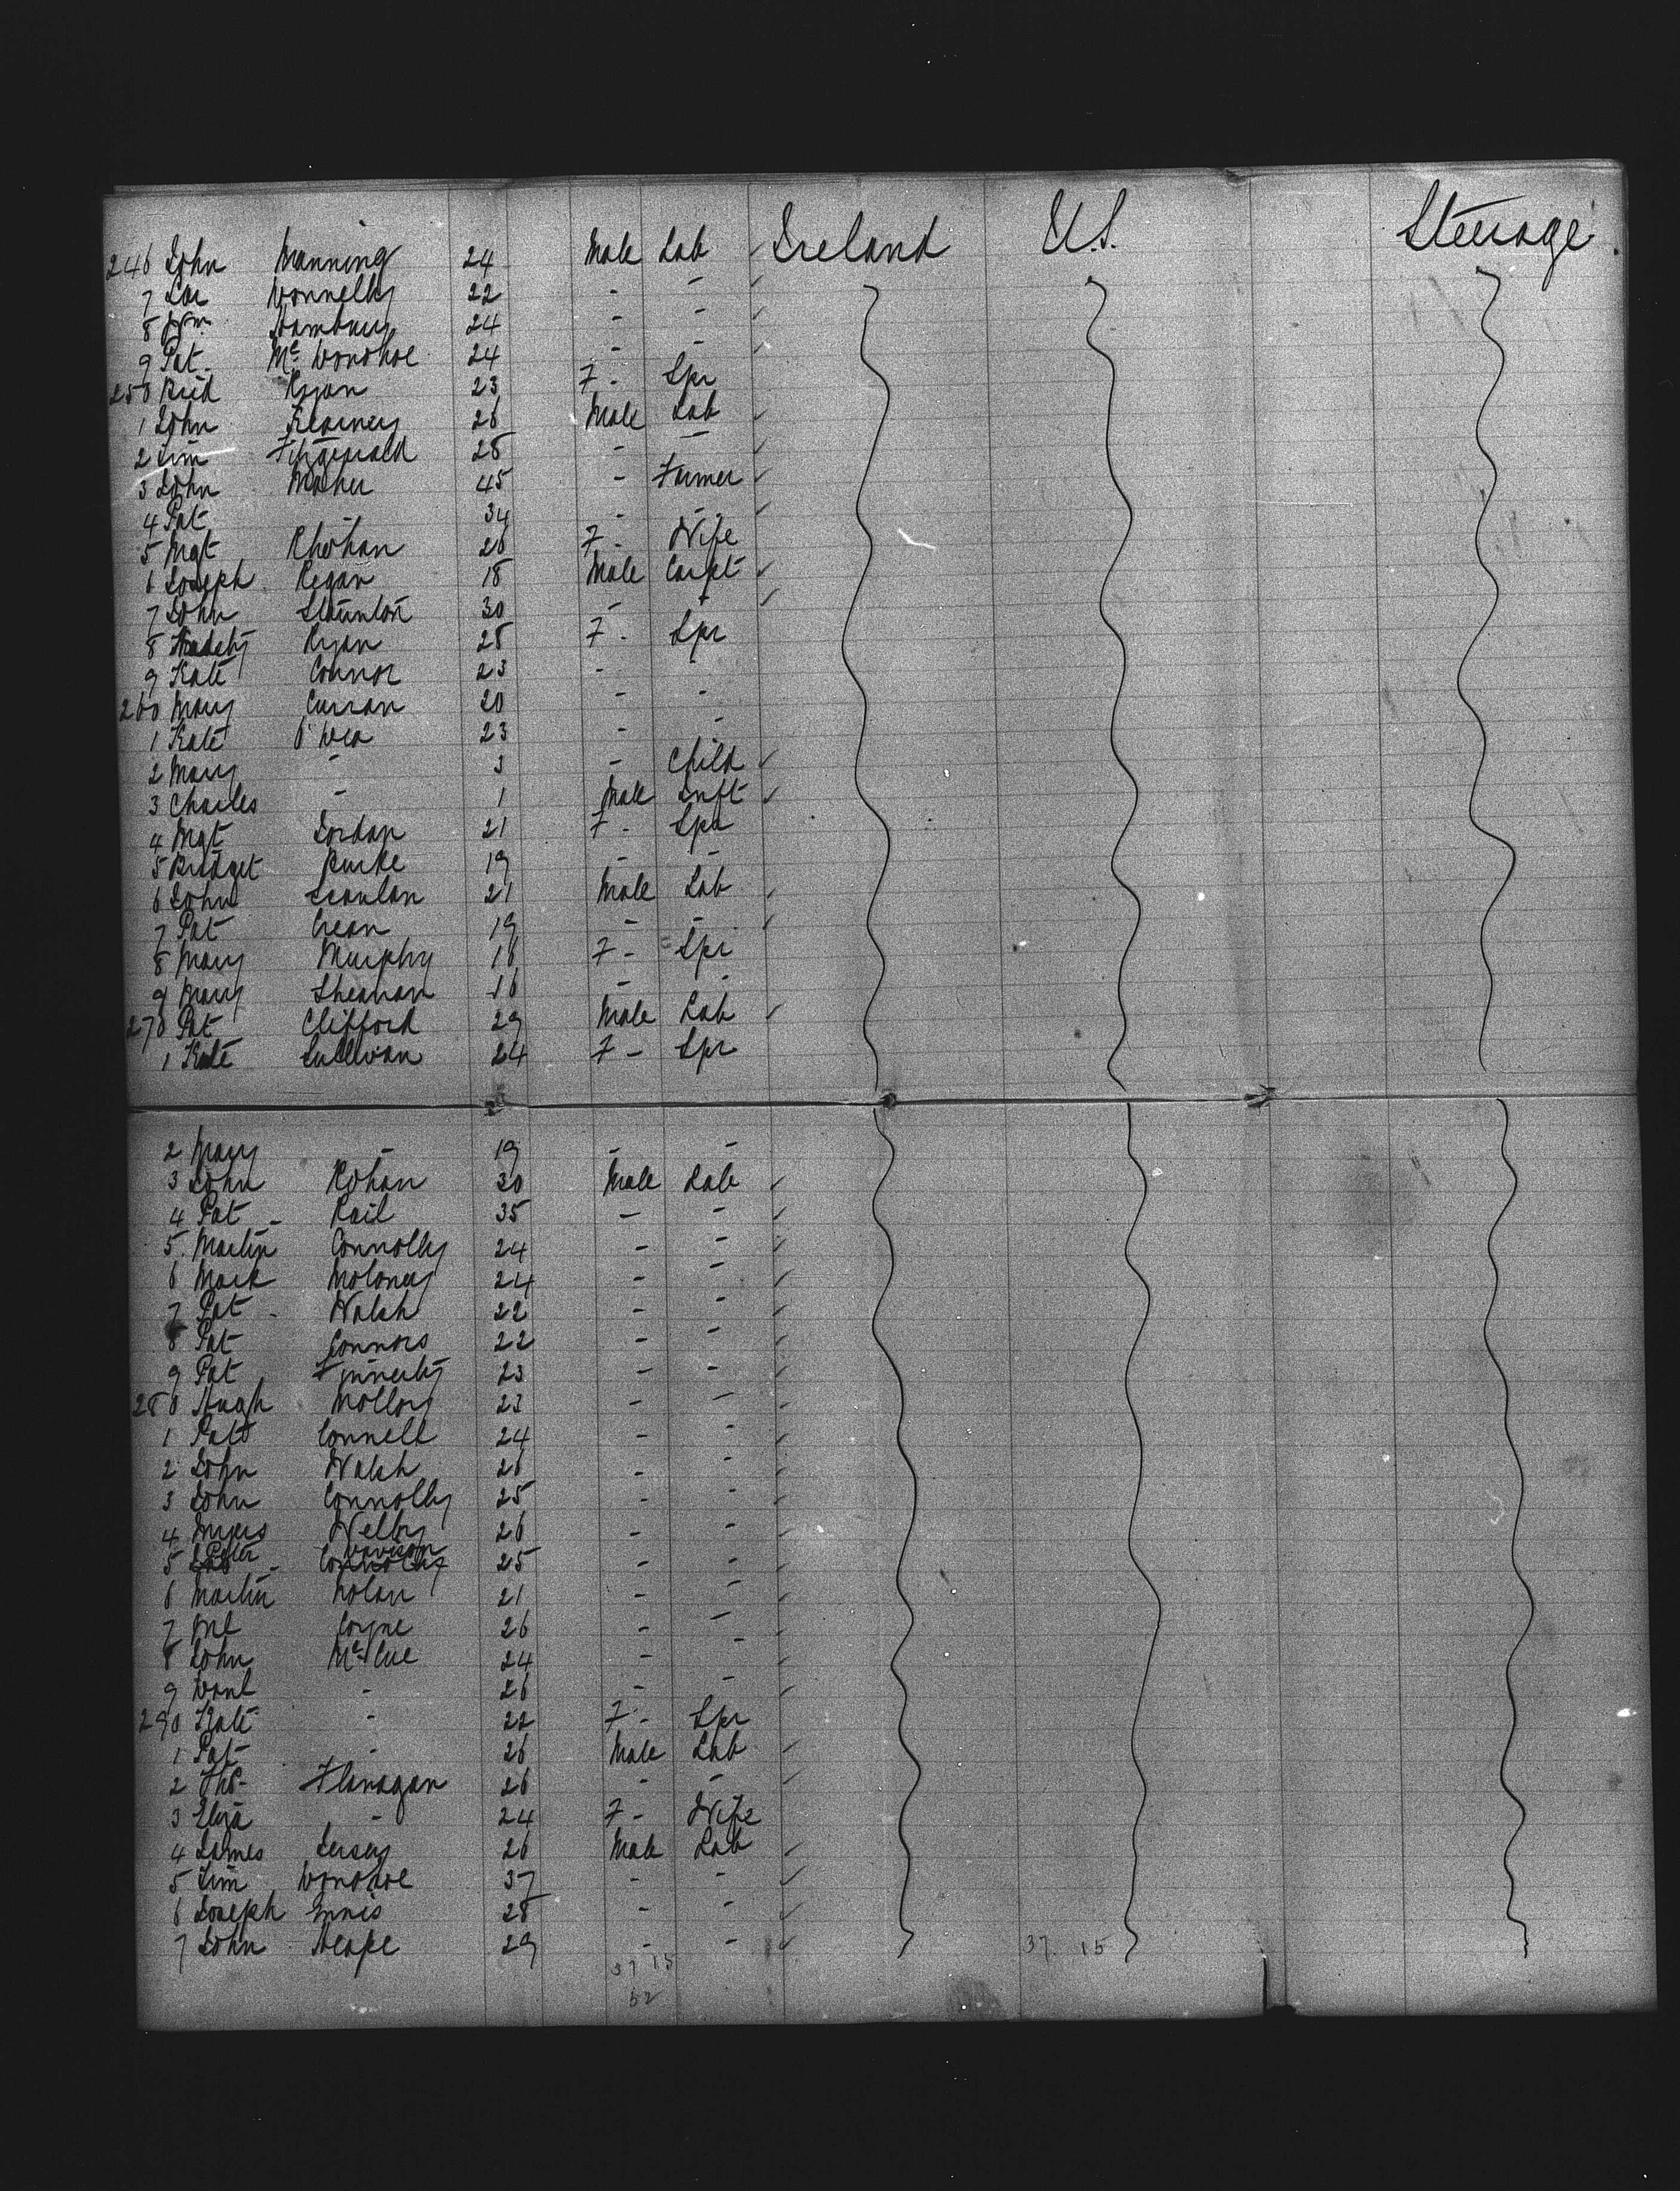 246 John Manning 24 Male Lab Ireland U.S. Steerage.
7 Donnelly 22 - -
8 Wm Hambury 24 - -
9 Pat Mc Donohoe 24 - -
250 Brid Ryan 23 F - Spr
1 John Kearney 26 Male Lab
2 Tim Fitzgerald 28 - -
3 John Maher 45 - Farmer
4 Pat - 34 - -
5 Mgt 26 F - Wife
6 Joseph Regan 18 Male Carpt
7 John Staunton 30 -
8 Ryan 28 F - Spr
9 Kate Connor 23 -
260 Mary Curran 20 - -
1 Kate O'Dea 23 - -
2 Mary - 3 - Child
3 Charles - 1 Male Inft
4 Mgt Jordan 21 F - Spr
5 Bridget Burke 19 - -
6 John Scanlan 21 Male Lab
7 Pat Crean 19 - -
8 Mary Murphy 18 F - Spr
9 Mary Sheahan 16 - -
270 Pat Clifford 29 Male Lab
1 Kate Sullivan 24 F - Spr
2 Mary - 19 - -
3 John Rohan 30 Male Lab
4 Pat - Kail 35 - -
5 Martin Connolly 24 - -
6 Mark Moloney 24 - -
7 Pat - Walsh 22 - -
8 Pat Connors 22 - -
9 Pat Finnerty 23 - -
280 Hugh Molloy 23 - -
1 Pat Connell 24 - -
2 John Walsh 26 - -
3 John Connolly 25 - -
4 Myers Welby 26 - -
5 Peter Davison 25 - -
6 Martin Nolan 21 - -
7 Ml Coyne 26 - -
8 John Mc Cue 24 - -
9 Danl - 26 - -
290 Kate - 22 F - Spr
1 Pat - 26 Male Lab
2 Ths Flanagan 26 - -
3 Eliza - 24 F - Wife
4 James Jersey 26 Male Lab
5 Tim Donohoe 37 - -
6 Joseph Ennis 28 - -
7 John Heape 29 - - 37 15
37 15
52